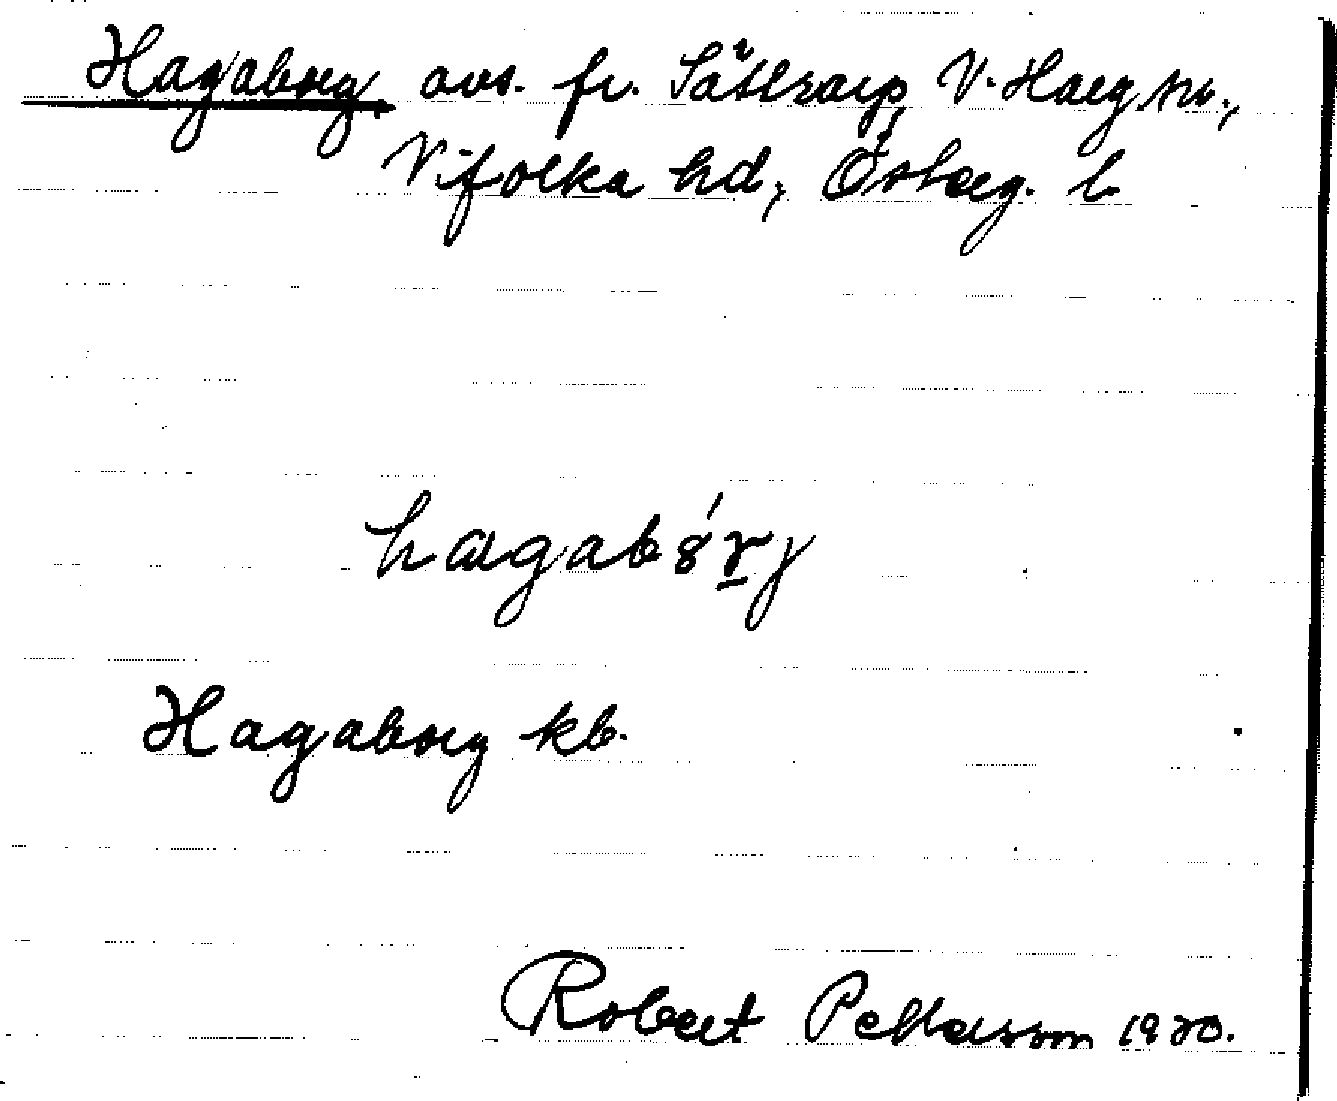 Hagaborg, avs. fr. Sättrarp, V. Harg sn.,
Vifolka hd, Österg. l.
hagabórj
Hagaborg kb.
Robert Pettersson 1920.